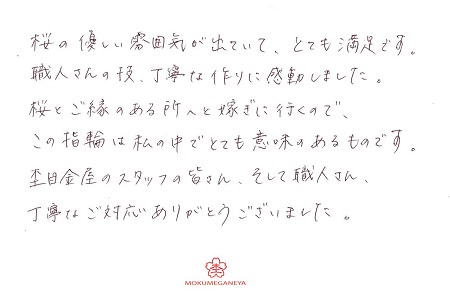 桜の優しい雰囲気が出ていて、とても満足です。
職人さんの技、丁寧な作りに感動しました。
桜とご縁のある所へと嫁ぎに行くので、
この指輪は私の中でとても意味のあるものです。
杢目金屋のスタッフの皆さん、そして職人さん、
丁寧なご対応ありがとうございました。
MOKUMEGANEYA